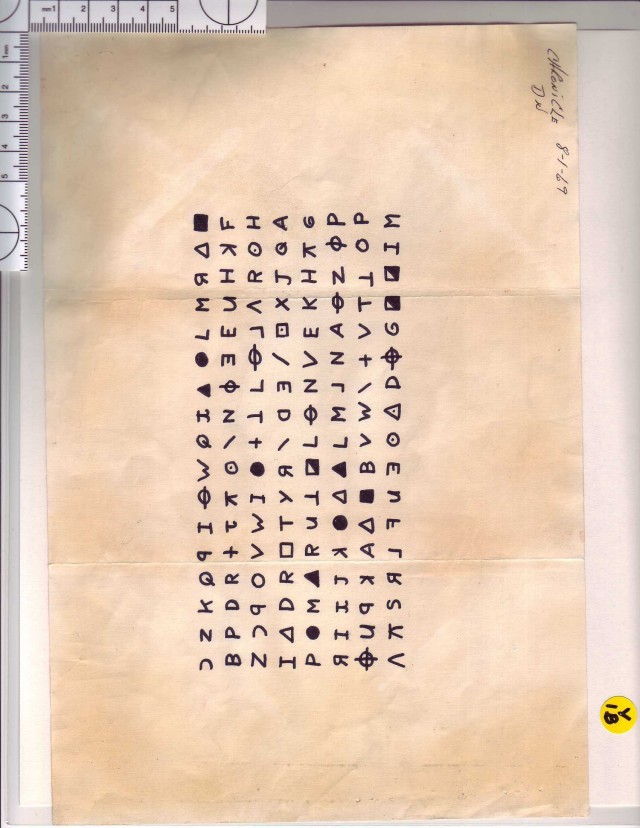 CHRONICLE 8-1-69
DN
Ɔ Z K Q ꟼ I Ꮎ W Q I ▲ ● L M Я Δ ■
B P D R + Ʇ π ⊙ \ N Φ Ǝ E U H ꓘ F
Z Ɔ ꟼ O V W I ● + ⊥ L Ꮎ ⅃ Λ R ⊙ H
I Δ D R □ T Y Я \ ᗡ Ǝ / ⊡ X J Q A
P ● M ▲ R U ⊥ ◪ L Ꮎ N V E K H π G
Я I I J ꓘ ● Δ ▲ L M ⅃ N A Ꮎ Z Φ P
⌖ U ꟼ ꓘ A Δ ■ B V W \ + V T ⊥ O P
Λ π S Я ⅃ ꟻ U Ǝ ⊙ ◬ D ⌖ G ◪ ◪ I M
mm 1 2 3 4 5
1mm 2 3 4 5
Y
1B